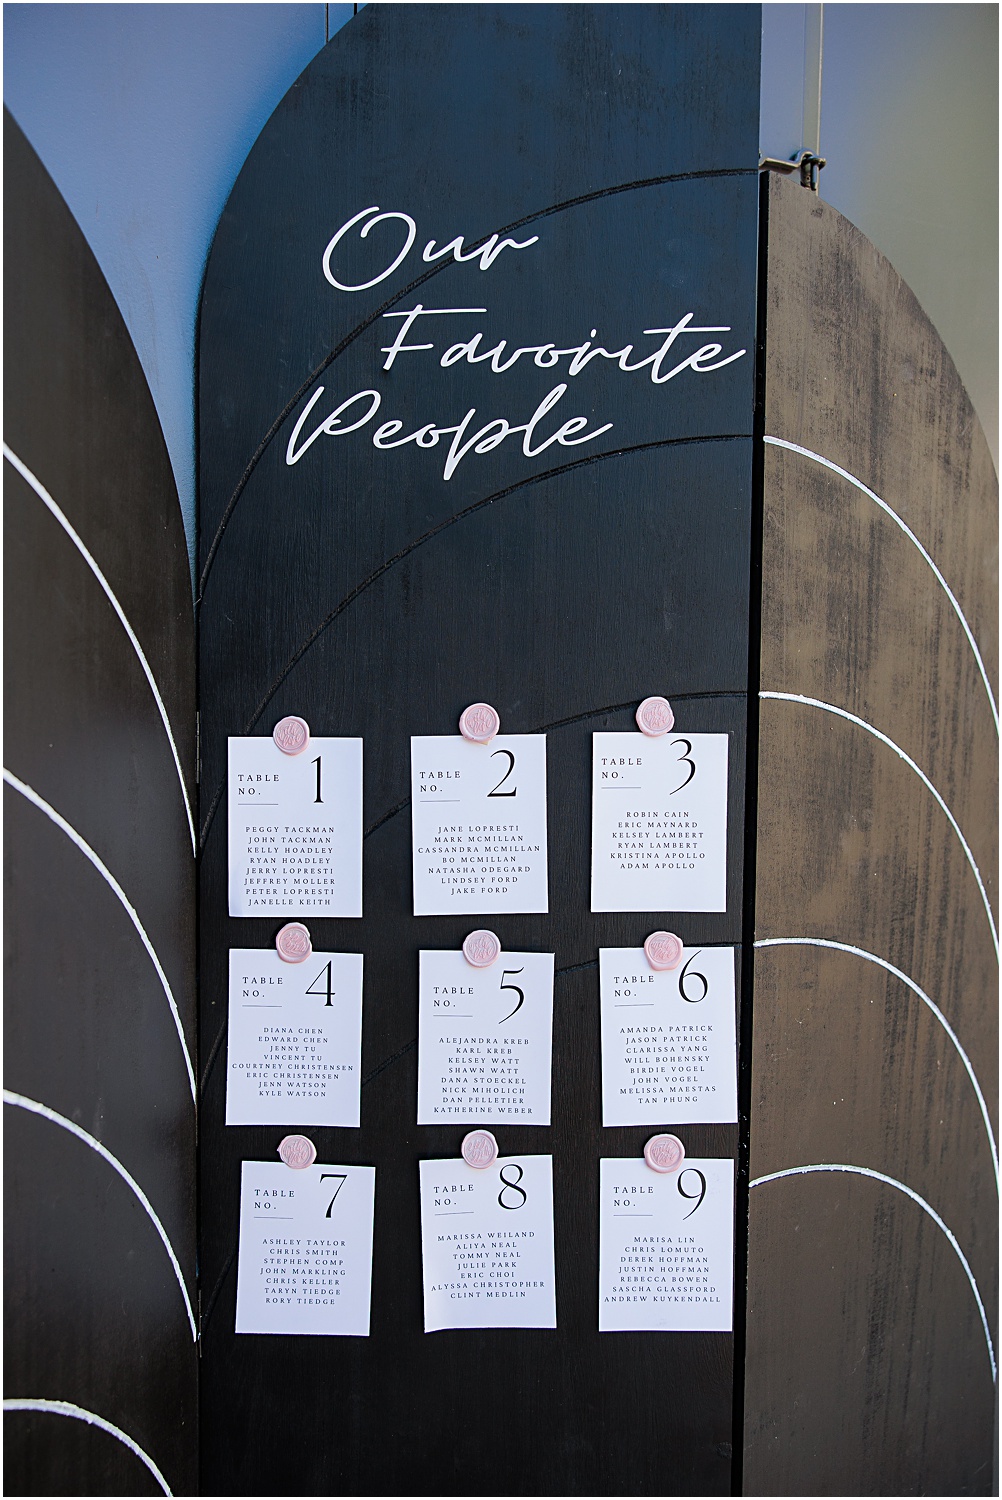 Our
Favorite
People
TABLE
NO.
1
PEGGY TACKMAN
JOHN TACKMAN
KELLY HOADLEY
RYAN HOADLEY
JERRY LOPRESTI
JEFFREY MOLLER
PETER LOPRESTI
JANELLE KEITH
TABLE
NO.
2
JANE LOPRESTI
MARK MCMILLAN
CASSANDRA MCMILLAN
BO MCMILLAN
NATASHA ODEGARD
LINDSEY FORD
JAKE FORD
TABLE
NO.
3
ROBIN CAIN
ERIC MAYNARD
KELSEY LAMBERT
RYAN LAMBERT
KRISTINA APOLLO
ADAM APOLLO
TABLE
NO.
4
DIANA CHEN
EDWARD CHEN
JENNY TU
VINCENT TU
COURTNEY CHRISTENSEN
ERIC CHRISTENSEN
JENN WATSON
KYLE WATSON
TABLE
NO.
5
ALEJANDRA KREB
KARL KREB
KELSEY WATT
SHAWN WATT
DANA STOECKEL
NICK MIHOLICH
DAN PELLETIER
KATHERINE WEBER
TABLE
NO.
6
AMANDA PATRICK
JASON PATRICK
CLARISSA YANG
WILL BOHENSKY
BIRDIE VOGEL
JOHN VOGEL
MELISSA MAESTAS
TAN PHUNG
TABLE
NO.
7
ASHLEY TAYLOR
CHRIS SMITH
STEPHEN COMP
JOHN MARKLING
CHRIS KELLER
TARYN TIEDGE
RORY TIEDGE
TABLE
NO.
8
MARISSA WEILAND
ALIYA NEAL
TOMMY NEAL
JULIE PARK
ERIC CHOI
ALYSSA CHRISTOPHER
CLINT MEDLIN
TABLE
NO.
9
MARISA LIN
CHRIS LOMUTO
DEREK HOFFMAN
JUSTIN HOFFMAN
REBECCA BOWEN
SASCHA GLASSFORD
ANDREW KUYKENDALL